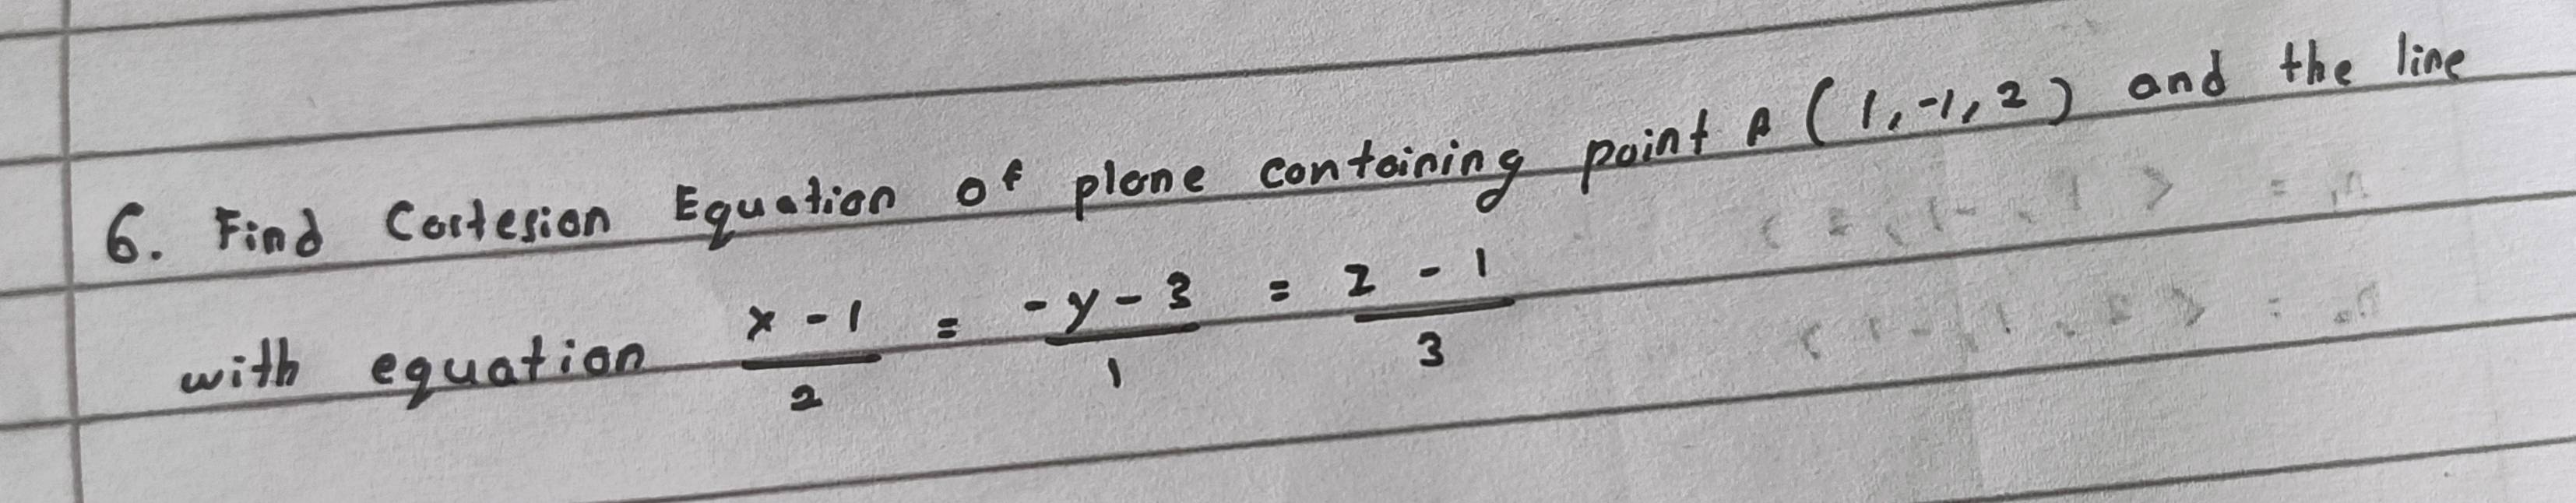 6. Find Cartesian Equation of plane containing point A (1,-1,2) and the line
with equation x-1/2 = -y-3/1 = z-1/3